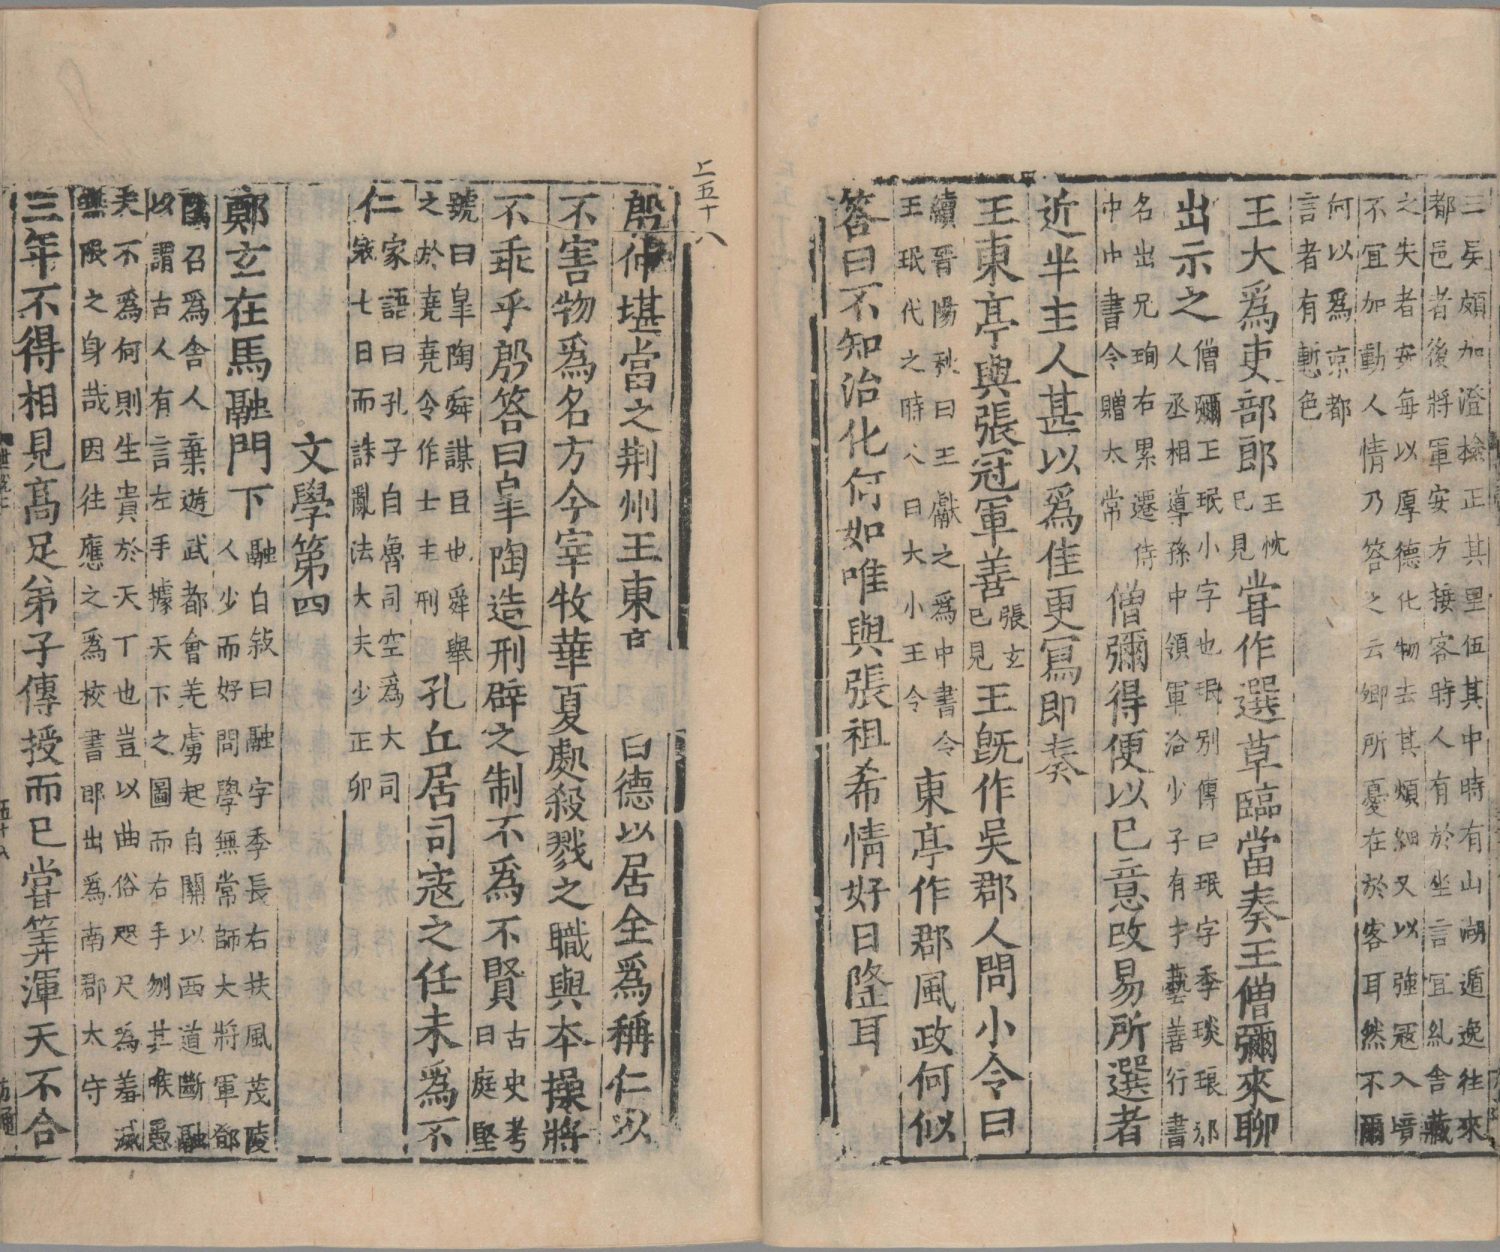 三吳頗加澄檢正其里伍其中時有山湖遁逸往來
都邑者後將軍安方接客時人有於坐言宜糺舍藏
之失者安每以厚德化物去其煩細又以強寇入境
不宜加動人情乃答之云卿所憂在於客耳然不爾
何以爲京都
言者有慙色
王大爲吏部郎王忱已見嘗作選草臨當奏王僧彌來聊
出示之僧彌王珉小字也珉別傳曰珉字季琰琅邪人丞相導孫中領軍洽少子有才藝善行書
名出兄珣右累遷侍中中書令贈太常僧彌得便以已意改易所選者
近半主人甚以爲佳更寫即奏
王東亭與張冠軍善張玄已見王旣作吳郡人問小令曰
續晉陽秋曰王獻之爲中書令王珉代之時人曰大小王令東亭作郡風政何似
答曰不知治化何如唯與張祖希情好日隆耳
上五十八
殷仲堪當之荆州王東曰德以居全爲稱仁以
不害物爲名方今宰牧華夏處殺戮之職與本操將
不乖乎殷答曰皐陶造刑辟之制不爲不賢古史考曰庭堅
號曰皐陶舜謀臣也舜舉之於堯堯令作士主刑孔丘居司寇之任未爲不
仁家語曰孔子自魯司空爲大司寇七日而誅亂法大夫少正卯
文學第四
鄭玄在馬融門下融自敍曰融字季長右扶風茂陵人少而好問學無常師大將軍鄧
騭召爲舍人棄遊武都會羌虜起自關以西道斷融
以謂古人有言左手據天下之圖而右手刎其喉愚
夫不爲何則生貴於天丁也豈以曲俗咫尺爲羞滅
無限之身哉因往應之爲校書郎出爲南郡太守
三年不得相見高足弟子傳授而已嘗筭渾天不合